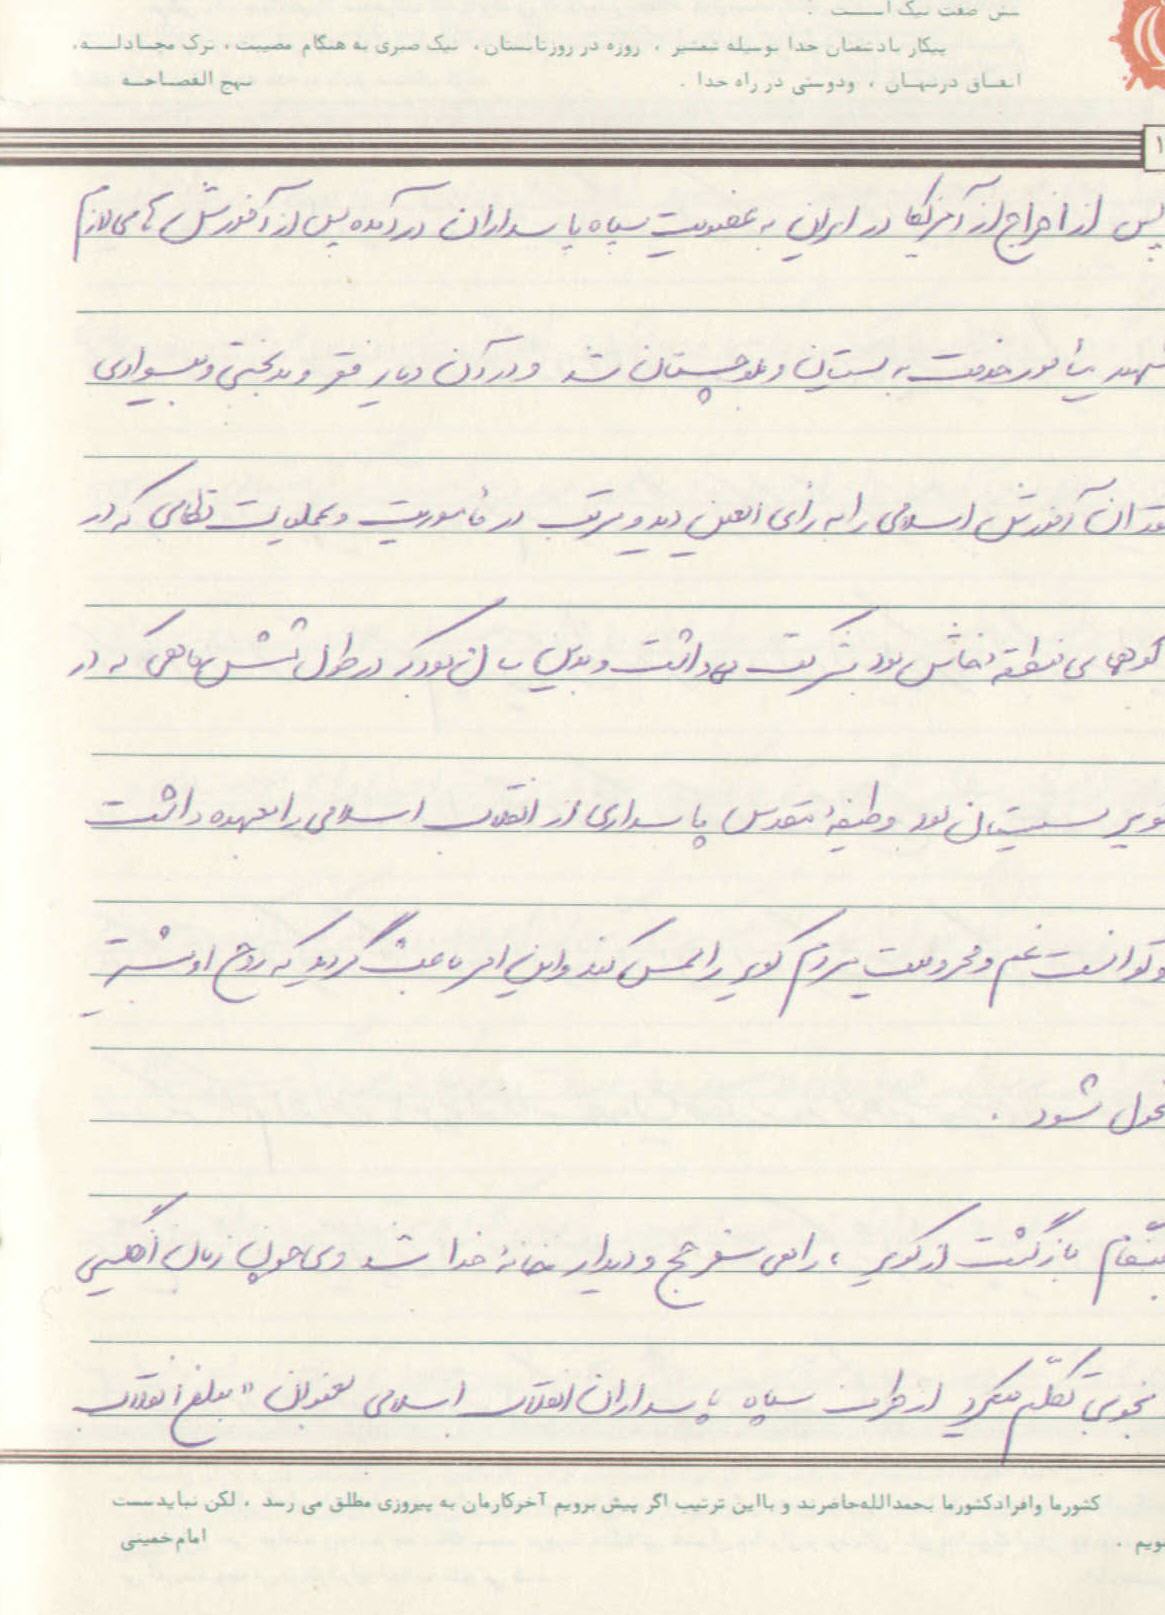 شش صفت نیک است :
پیکار بادشمنان خدا بوسیله شمشیر ، روزه در روزتابستان، نیک صبری به هنگام مصیبت، ترک مجادله،
انفاق درنهان ، ودوستی در راه خدا . نهج الفصاحه
۱
پس از اخراج از آمریکا در ایران به عضویت سپاه پاسداران درآمده پس از آموزش های لازم
شهید مأمور خدمت به سیستان و بلوچستان شد و در آن دیار فقر و بدبختی و بیسوادی
فقدان آموزش اسلامی را به رأی العین دید و مرتب در مأموریت و عملیات نظامی که در
کوههای منطقه خاش بود شرکت می داشت و بدین سان بود که در طول شش ماهی که در
کویر سیستان بود وظیفهٔ مقدس پاسداری از انقلاب اسلامی را بعهده داشت
وتوانست غم و محرومیت مردم کویر را لمس کند و این امر باعث گردید که روح او بیشتر
متحول شود .
بازگشت از کویر ، راهی سفر حج و دیدار خانهٔ خدا شد وی چون زبان انگلیسی
بخوبی تکلّم میکرد از طرف سپاه پاسداران انقلاب اسلامی بعنوان " مبلغ انقلاب
کشورما وافرادکشورما بحمدالله‌حاضرند و بااین ترتیب اگر پیش برویم آخرکارمان به پیروزی مطلق می رسد ، لکن نبایدسست
شویم . امام‌خمینی